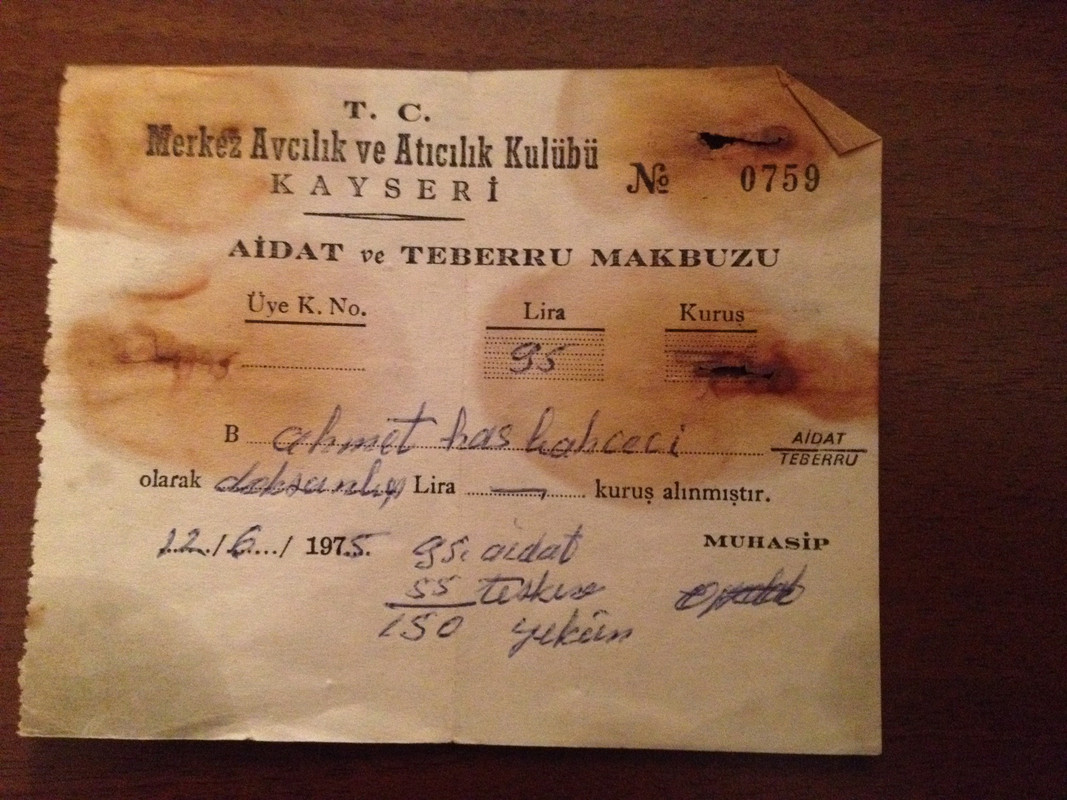 T. C.
Merkez Avcılık ve Atıcılık Kulübü
KAYSERİ
№ 0759
AİDAT ve TEBERRU MAKBUZU
Üye K. No. Lira Kuruş
95
B ahmet has bahceci AİDAT
TEBERRU
olarak Lira — kuruş alınmıştır.
12/6/1975.
MUHASİP
95. aidat
55 teskere
150 yekün